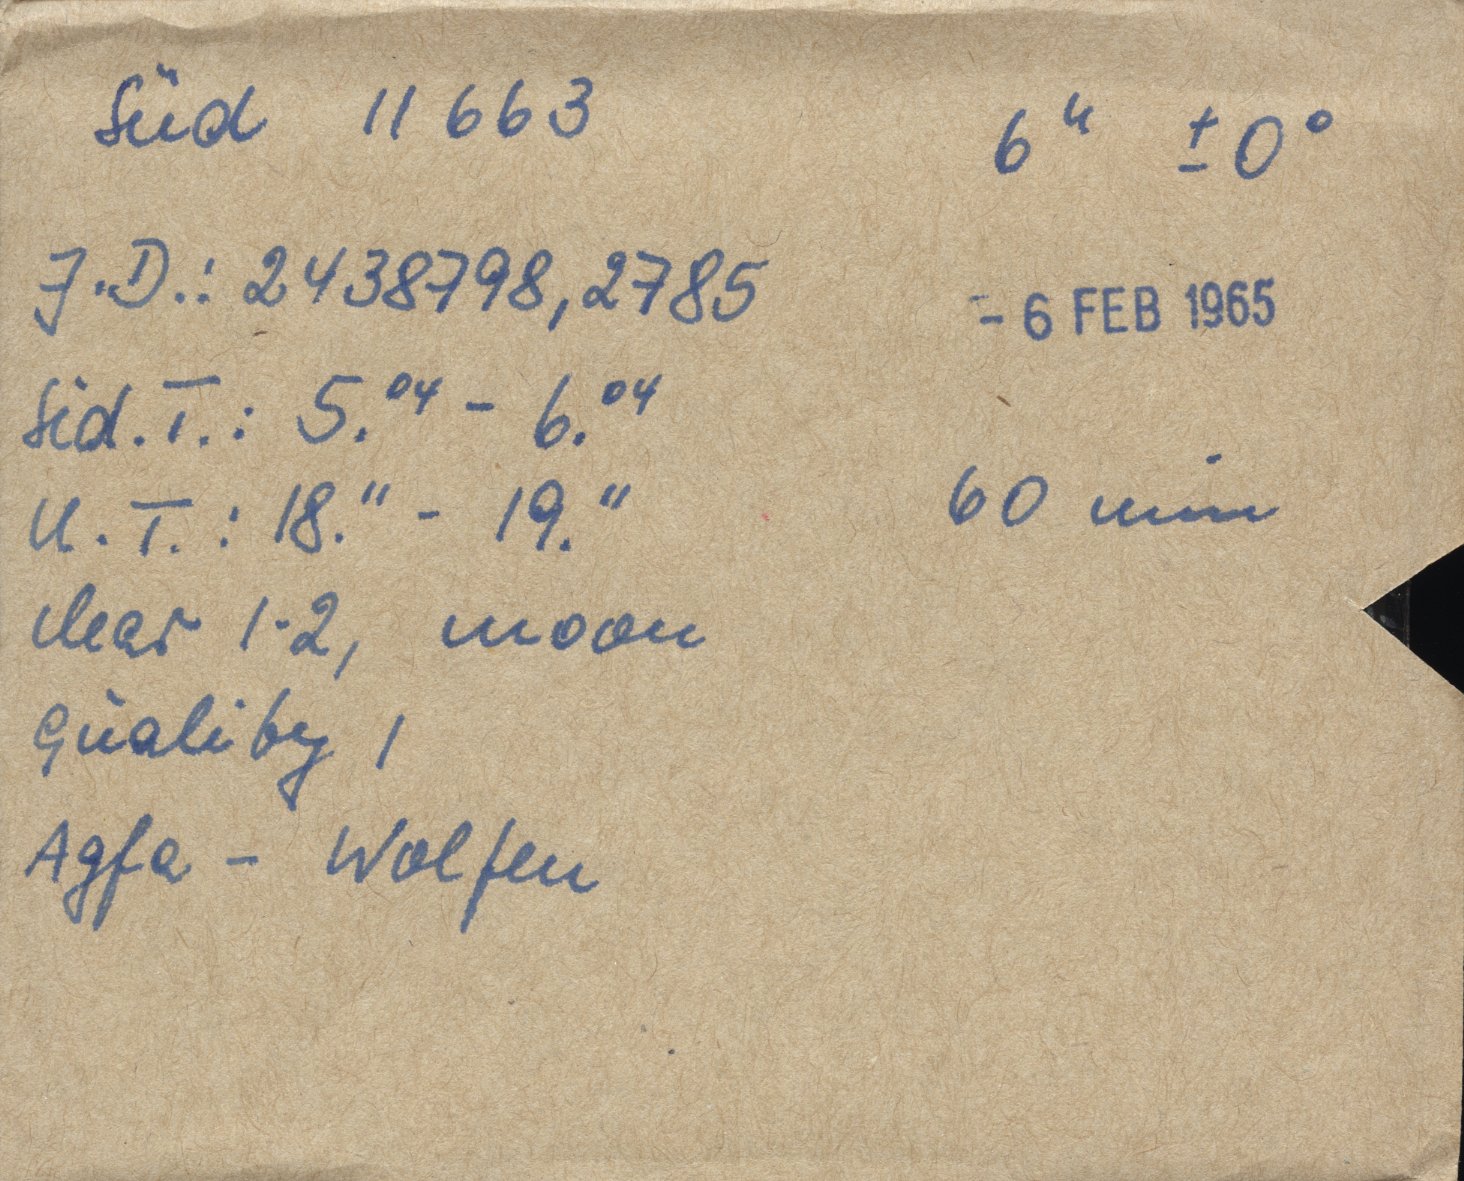 Süd 11663 6ʰ ±0°
J.D.: 2438798,2785 - 6 FEB 1965
Sid.T.: 5.⁰⁴ - 6.⁰⁴
U.T.: 18.¹¹ - 19.¹¹ 60 min
clear 1-2, moon
Quality 1
Agfa - Wolfen